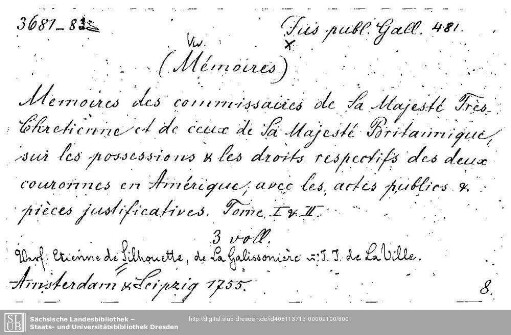 3681-83 Jus publ. Gall. 481.
Vw. x
(Mémoires)
Memoires des commissaires de Sa Majesté Très-
Chretienne et de ceux de Sa Majesté Britannique,
sur les possessions & les droits respectifs des deux
couronnes en Amérique, avec les actes publics &
pièces justificatives. Tome I & II.
3 voll.
Verf: Etienne de Silhouette, de La Galissonière u. J. J. de La Ville.
Amsterdam & Leipzig 1755. 8.
Sächsische Landesbibliothek –
Staats- und Universitätsbibliothek Dresden